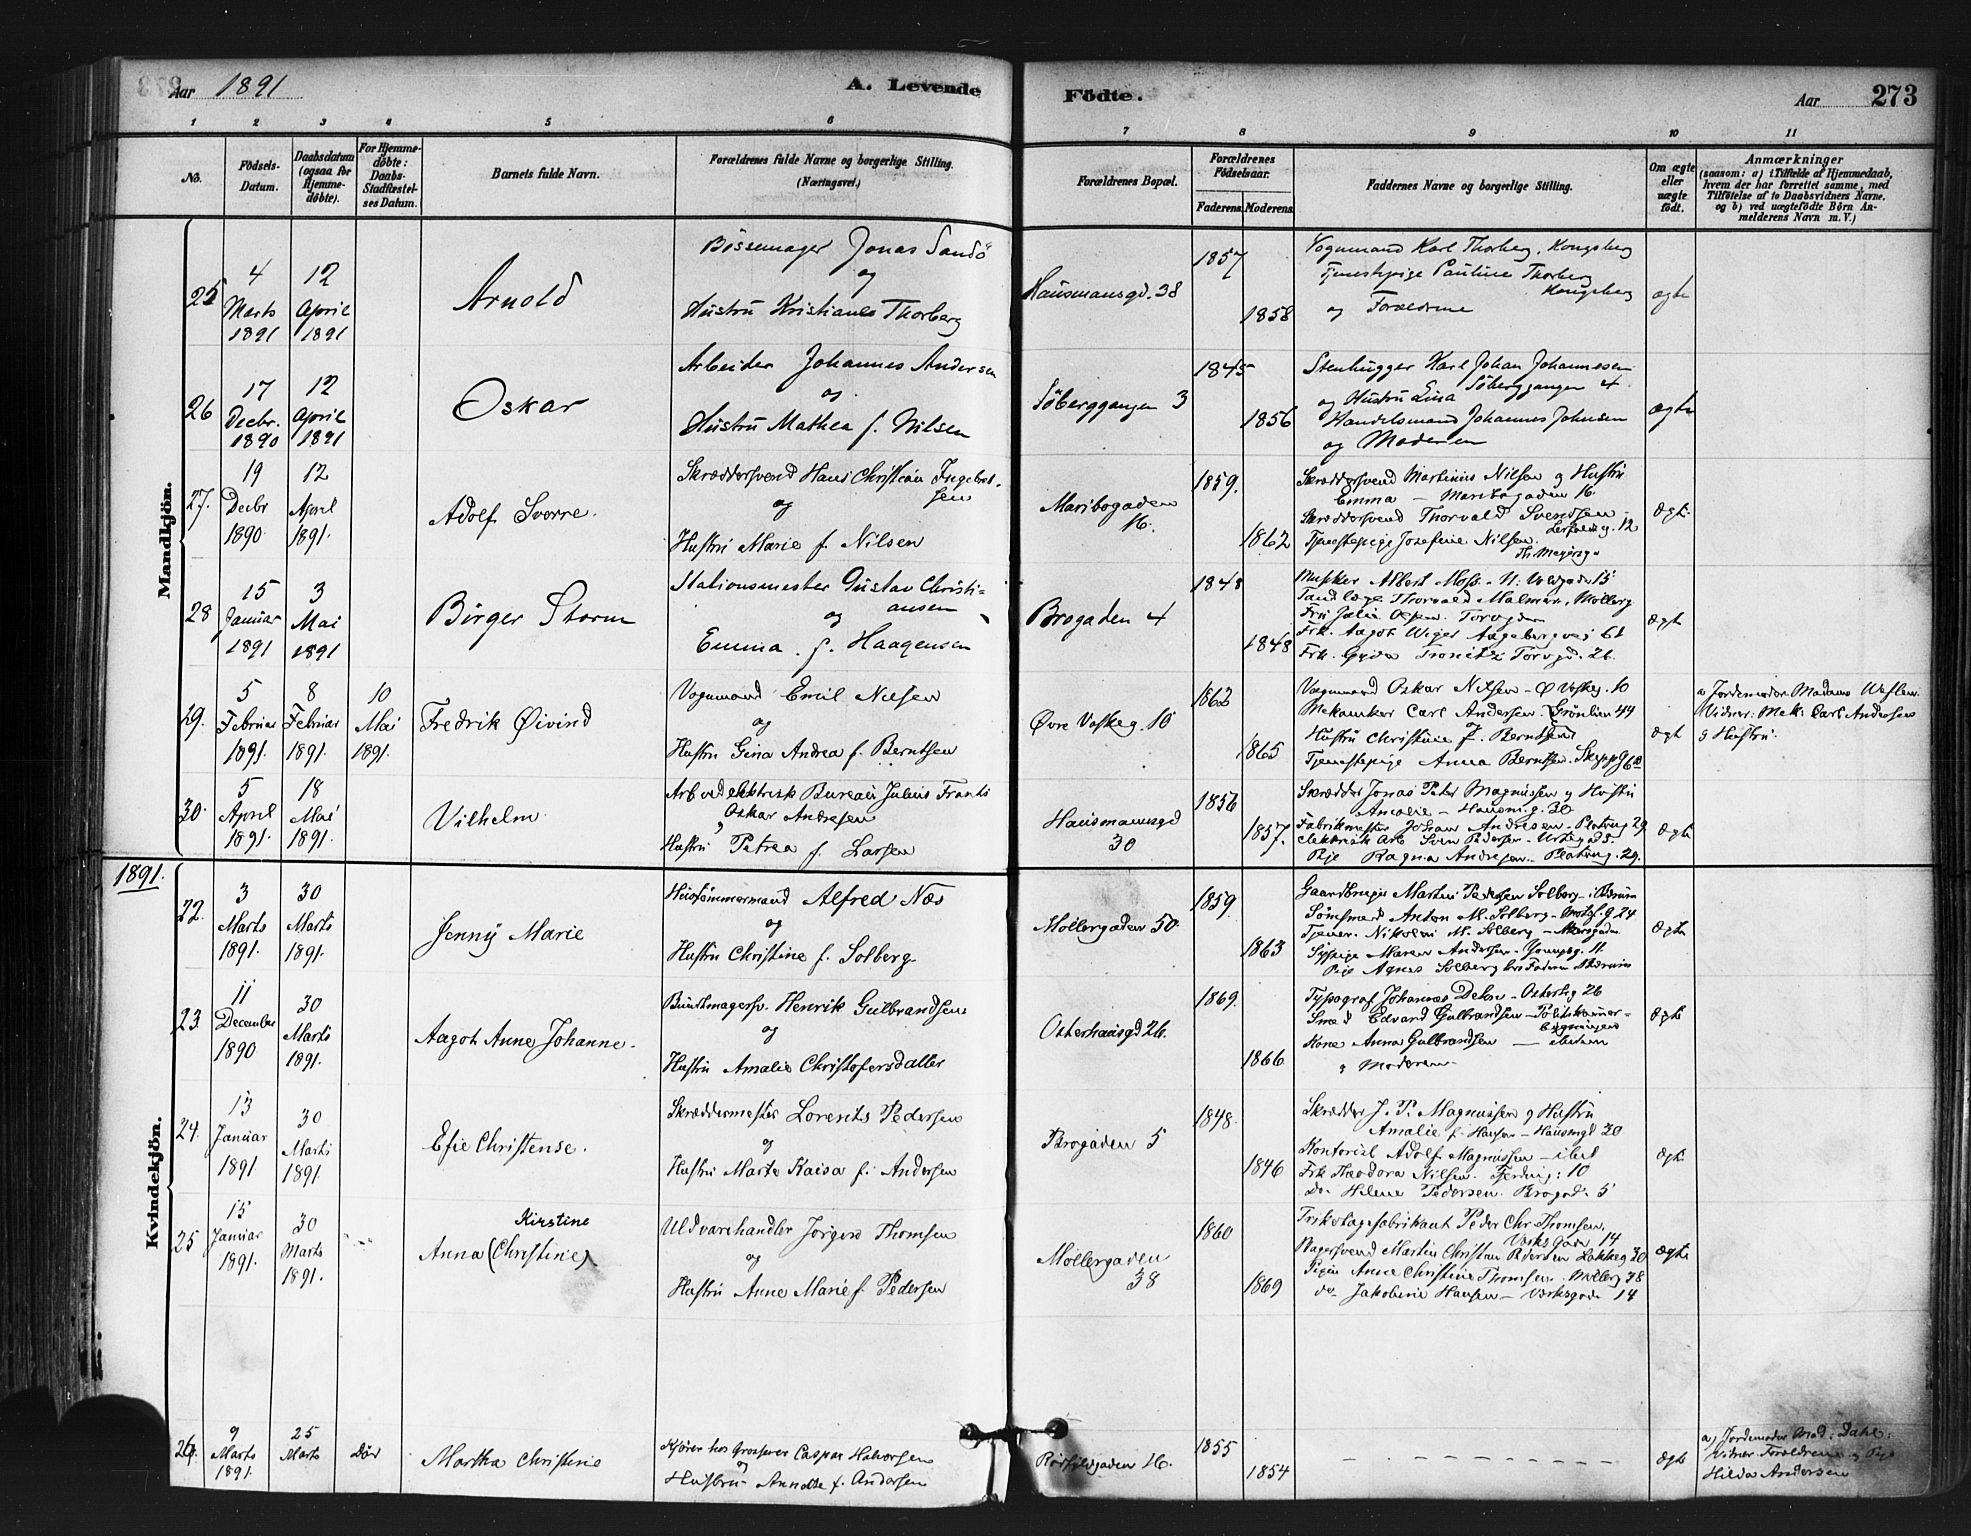 Aar 1891 A. Levende Födte. Aar 273
1 2 3 4 5 6 7 8 9 10 11
No. Födsels-Datum. Daabsdatum (ogsaa for Hjemmedöbte). For Hjemmedöbte: Daabs-Stadfæstelses Datum. Barnets fulde Navn. Forældrenes fulde Navne og borgerlige Stilling. (Næringsvei.) Forældrenes Bopæl. Forældrenes Födselsaar. Faderens. Moderens. Faddernes Navne og borgerlige Stilling. Om ægte eller uægte födt. Anmærkninger (saasom: a) i Tilfælde af Hjemmedaab, hvem der har forrettet samme, med Tilföielse af to Daabsvidners Navne. og b) ved uægtefödte Börn Anmelderens Navn m. V.)
Mandkjön.
25 4 Marts 1891 12 April 1891 Arnold
Bössemager Jonas Sandö
og
Hustru Kristiane Thorberg
Hausmansgd. 38 1857 1858
Vognmand Karl Thorberg, Kongsberg
Tjenestepige Pauline Thorberg
Kongsberg
og Forældrene
ægte
26 17 Decbr. 1890 12 April 1891 Oskar
Arbeider Johannes Andersen
og
Hustru Mathea f. Nilsen
Söberggangen 3 1845 1856
Stenhugger Karl Johan Johannesen
og Hustru Lina Söberggangen 4
Handelsmand Johannes Johnsen
og Moderen
ægte
27. 19 Decbr 1890. 12 April 1891. Adolf Sverre.
Skræddersvend Hans Christian Ingebretsen
og
Hustru Marie f. Nilsen
Maribogaden 16. 1859. 1862
Skræddersvend Martinius Nilsen og Hustru
Emma – Maribogaden 16.
Skræddersvend Thorvald Svendsen
12
Tjenestepige Josefine Nilsen.
Th. Meyersg.
Ægte.
28 15 Januar 1891 3 Mai 1891 Birger Storm
Stationsmester Gustav Christiansen
og
Emma f. Haagensen
Brogaden 4 1848 1848
Musiker Albert Moss
Tandlæge Thorvald Malman, Mollerg
Fru Julie Torvgden
Frk. Aagot Aagebergvei 61
Frk. Gyda Torvgd. 26.
ægt
29. 5 Februar 1891. 8 Februar 1891. 10 Mai 1891. Fredrik Øivind
Vognmand Emil Nilsen
og
Hustru Gina Andrea f. Berntsen
Øvre Vaskeg. 10 1862 1865
Vognmand Oskar Nilsen – Ø Vaskeg. 10
Mekaniker Carl Andersen Grönlien 44
Hustru Christine f. Berntsen
Tjenestepige Anna Berntsen.
ægt
a) Jordemoder Madame
Vidner: Mek: Carl Andersen
og Hustru.
30. 5 April 1891. 18 Mai 1891. Vilhelm
Arb ved elektrisk Bureau Julius Frants
Oskar Andresen
Hustru Petrea f. Larsen
Hausmannsgd 30 1856 1857.
Skrædder Jonas Peter Magnussen og Hustru
Amalie – Hausm.g. 30
Fabrikmester Johan Andresen – Platoug 29
elektrisk Arb Sven Pedersen – Urtegad 5.
Pige Ragna Andresen – Platoug. 29.
Ægte
1891.
Kvindekjön.
22. 3 Marts 1891. 30 Marts 1891. Jenny Marie
Hustömmermand Alfred Næs
og
Hustru Christine f. Solberg
Möllergaden 50. 1859. 1863
Gaardbruger Martin Pedersen Solberg – i Bærum
Anton M. Solberg – 24
Tjener Nikolai M. Solberg
Sypige Maren Andersen – Youngsg. 11.
Pige Agnes Solberg hos Faderen Bærum
Ægte
23. 11 December 1890 30 Marts 1891. Aagot Anne Johanne.
Buntmagersv. Henrik Gulbrandsen
og
Hustru Amalie Christofersdatter
Osterhausgd 26. 1869. 1866
Typograf Johannes Dehn – Osterhg 26
Smed Edvard Gulbrandsen –
Kone Anna Gulbrandsen – ibidem
og Moderen
Ægte
24. 13 Januar 1891 30 Marts 1891. Efie Christense.
Skræddermester Lorents Pedersen
og
Hustru Marte Kaisa f. Andersen
Brogaden 5 1848. 1846
Skrædder J. P. Magnussen og Hustru
Amalie f. Hansen – Hausmgd 30
Kontorist Adolf Magnussen – ibid
Frk Theodora Nilsen. Fjerding: 10
Do. Helene Pedersen. Brogad. 5
Ægte
25 15 Januar 1891. 30 Marts 1891. Anna (Christine) Kirstine
Uldvarehandler Jörgen Thomsen
og
Hustru Anne Marie f. Pedersen
Möllergaden 38 1860 1869
Trikotagefabrikant Peder Chr Thomsen,
Værksgade 14
Bagersvend Martin Christian Pedersen Lakkeg 30
Pigen Anne Christine Thomsen. Mollerg 38
do Jakobine Hansen – Værksgade 14
Ægte
26. 9 Marts 1891. 25 Marts Död Martha Christine
Kjörer hos Grosserer Caspar Halvorsen
og
Hustru Annette f. Andersen
16. 1855 1854
ægte
a) Jordemoder Mad: Dahl:
Vidner Forældrene og Pige
Hilda Andersen